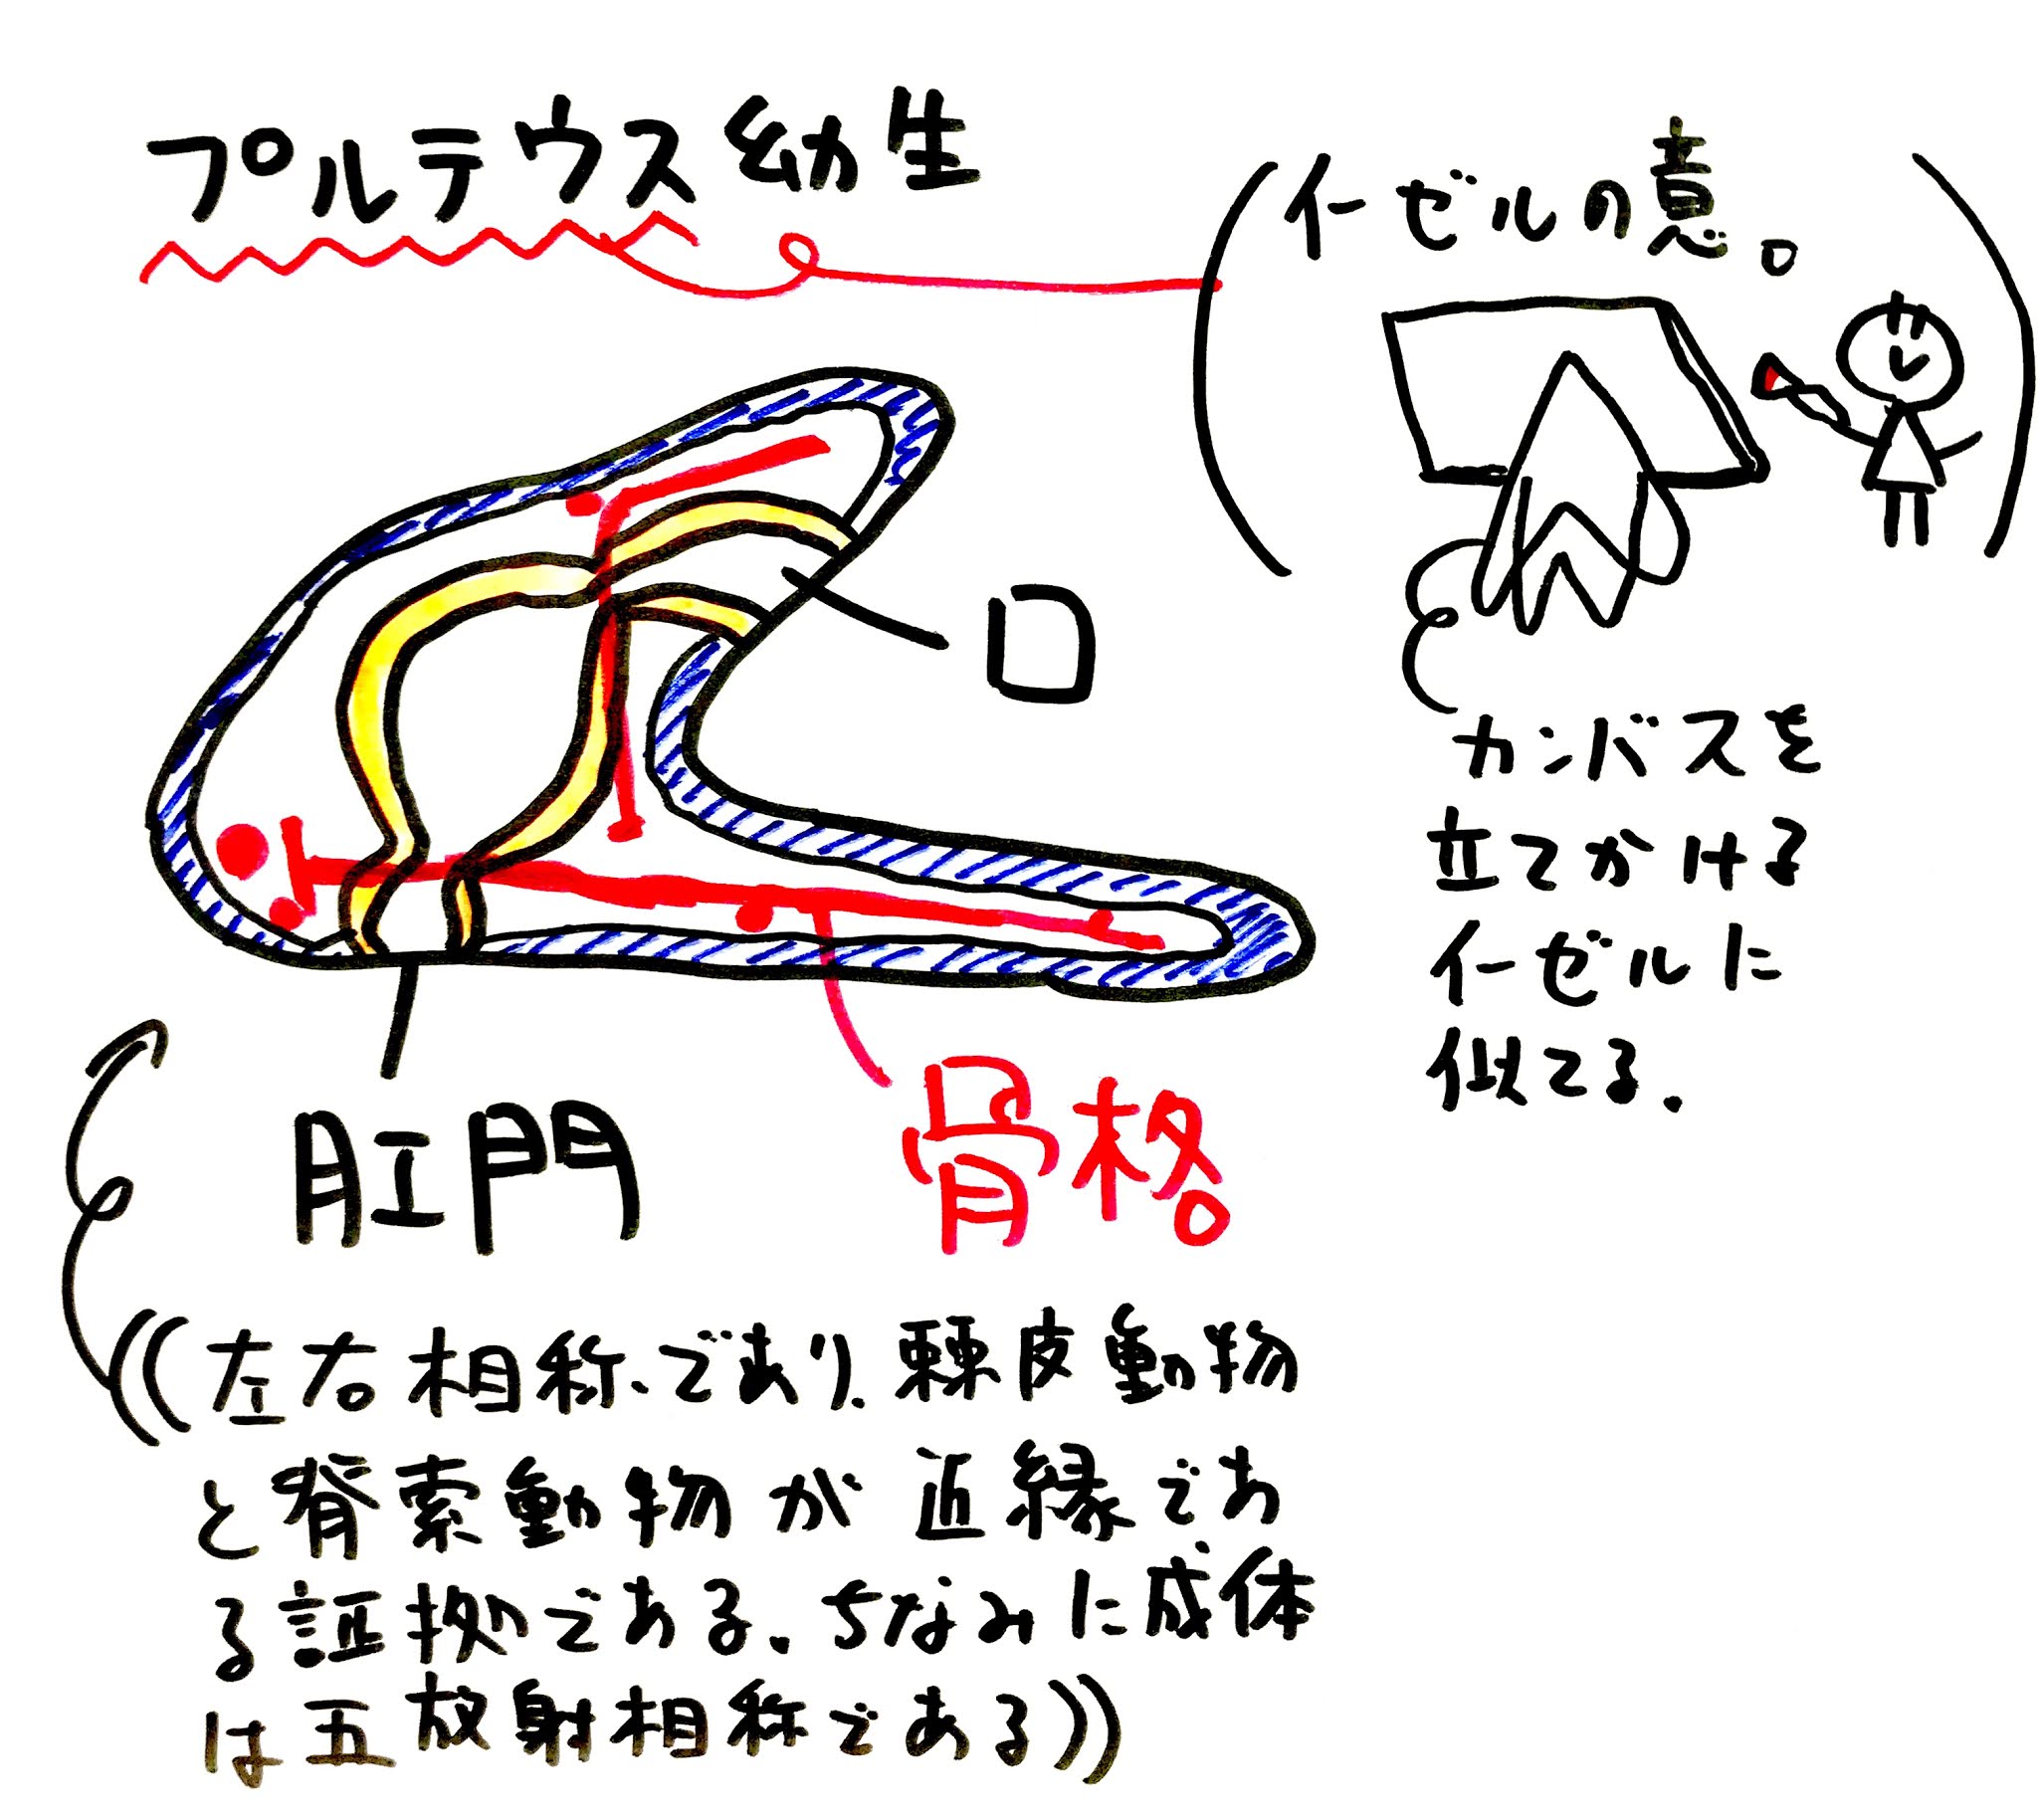 プルテウス幼生
(イーゼルの意。)
口
カンバスを
立てかける
イーゼルに
似てる.
肛門
骨格
((左右相称であり、棘皮動物
と脊索動物が近縁であ
る証拠である、ちなみに成体
は五放射相称である))